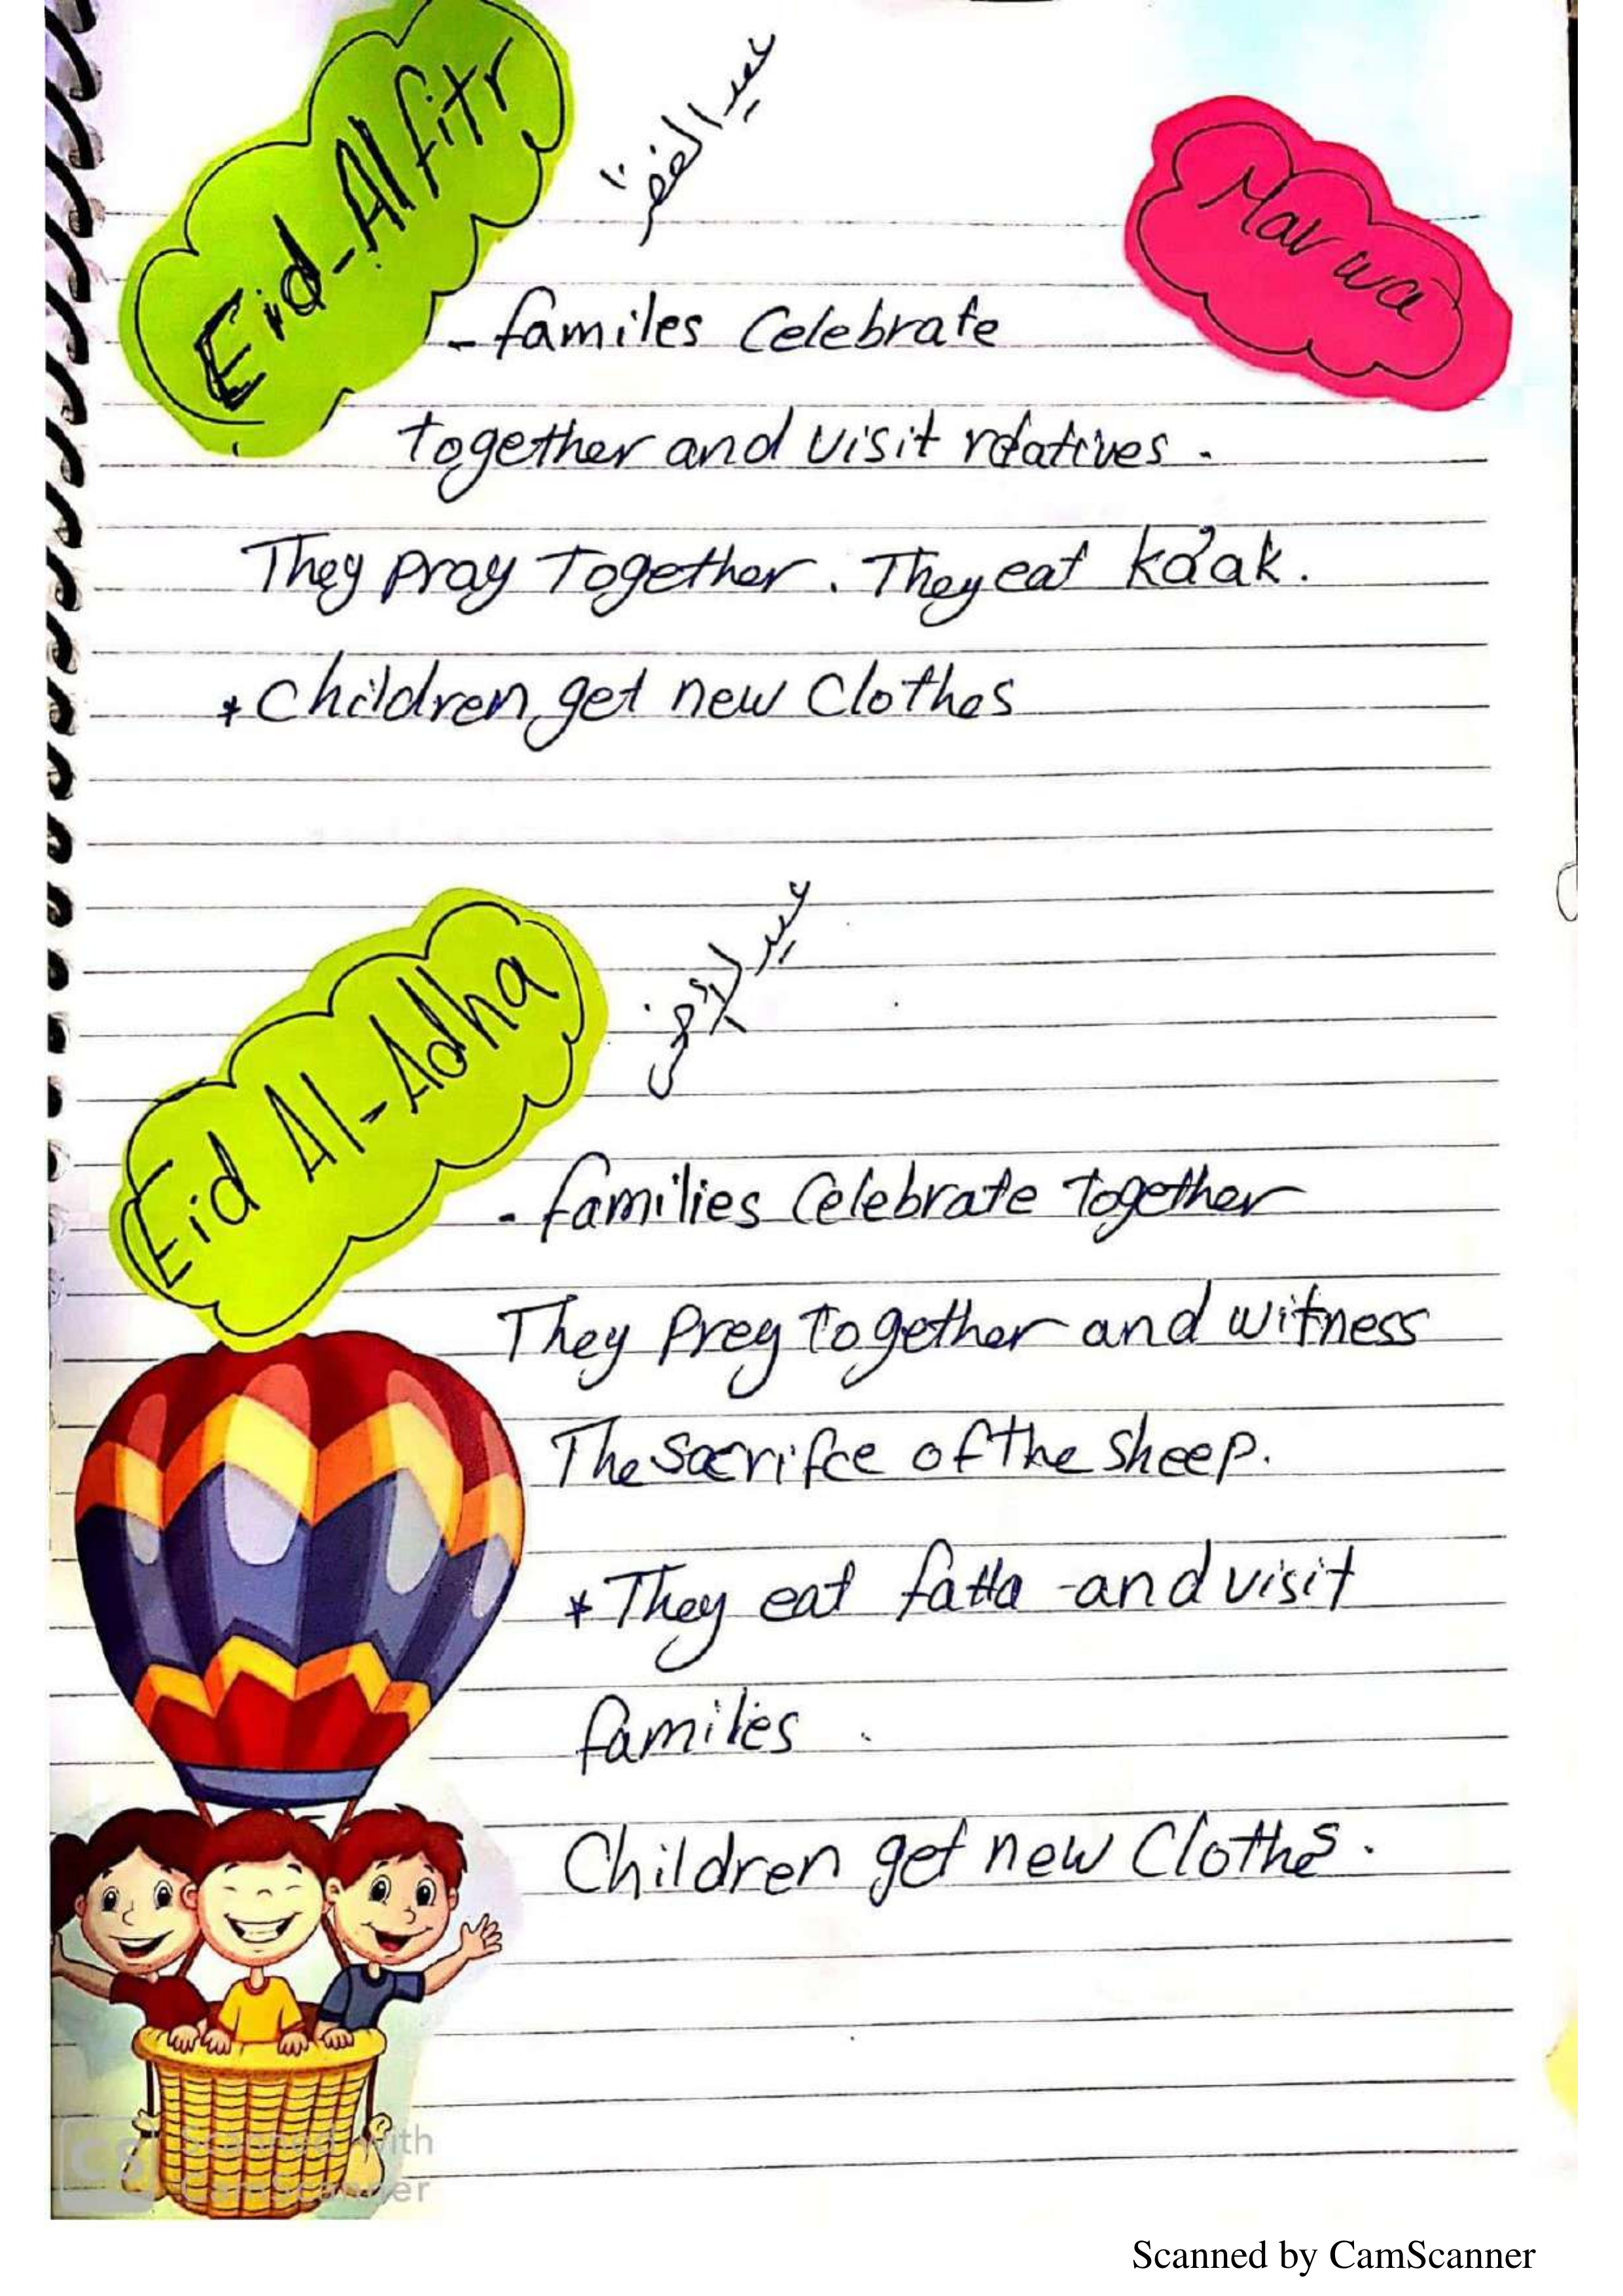 Eid-Al fitr
عيد الفطر
Marwa
- familes Celebrate
together and visit relatives .
They pray Together . They eat ka'ak .
* Children get new Clothes
Eid Al-Adha
عيد الأضحى
- families Celebrate Together
They Prey Together and witness
The sacrifce of the sheep.
* They eat fatta -and visit
families .
Children get new Clothes .
CS Scanned with
CamScanner
Scanned by CamScanner